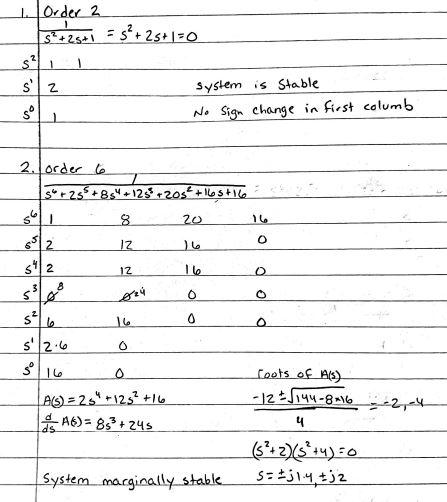 1. Order 2
1
s²+2s+1 = s²+2s+1=0
s² 1 1
s¹ 2 system is Stable
s⁰ 1 No Sign change in first columb
2. order 6
1
s⁶+2s⁵+8s⁴+12s³+20s²+16s+16
s⁶ 1 8 20 16
s⁵ 2 12 16 0
s⁴ 2 12 16 0
s³ 0 8 0 24 0 0
s² 6 16 0 0
s¹ 2.6 0
s⁰ 16 0 roots of A(s)
A(s) = 2s⁴+12s²+16 -12±√144-8*16 = -2,-4
d/ds A(s) = 8s³+24s 4
(s²+2)(s²+4)=0
System marginally stable s=±j1.4,±j2